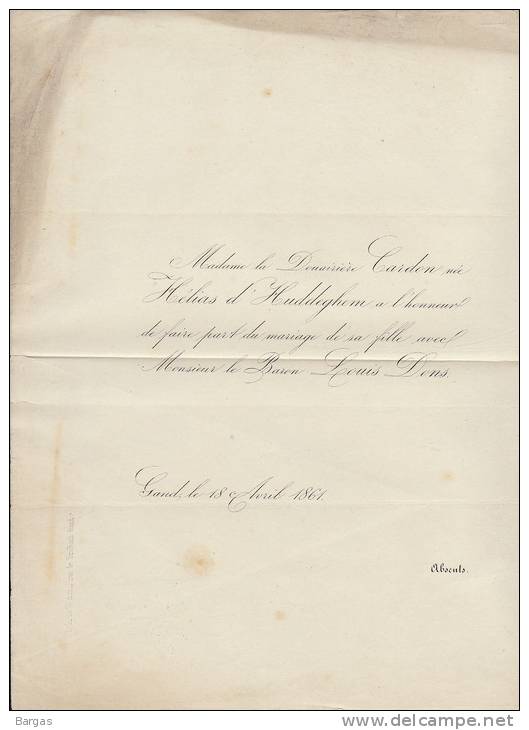 Madame la Douairière Cardon née
Hélias d'Huddeghem a l'honneur
de faire part du mariage de sa fille avec
Monsieur le Baron Louis Dons.
Gand, le 18 Avril 1861.
Absents.
Bargas
www.delcampe.net